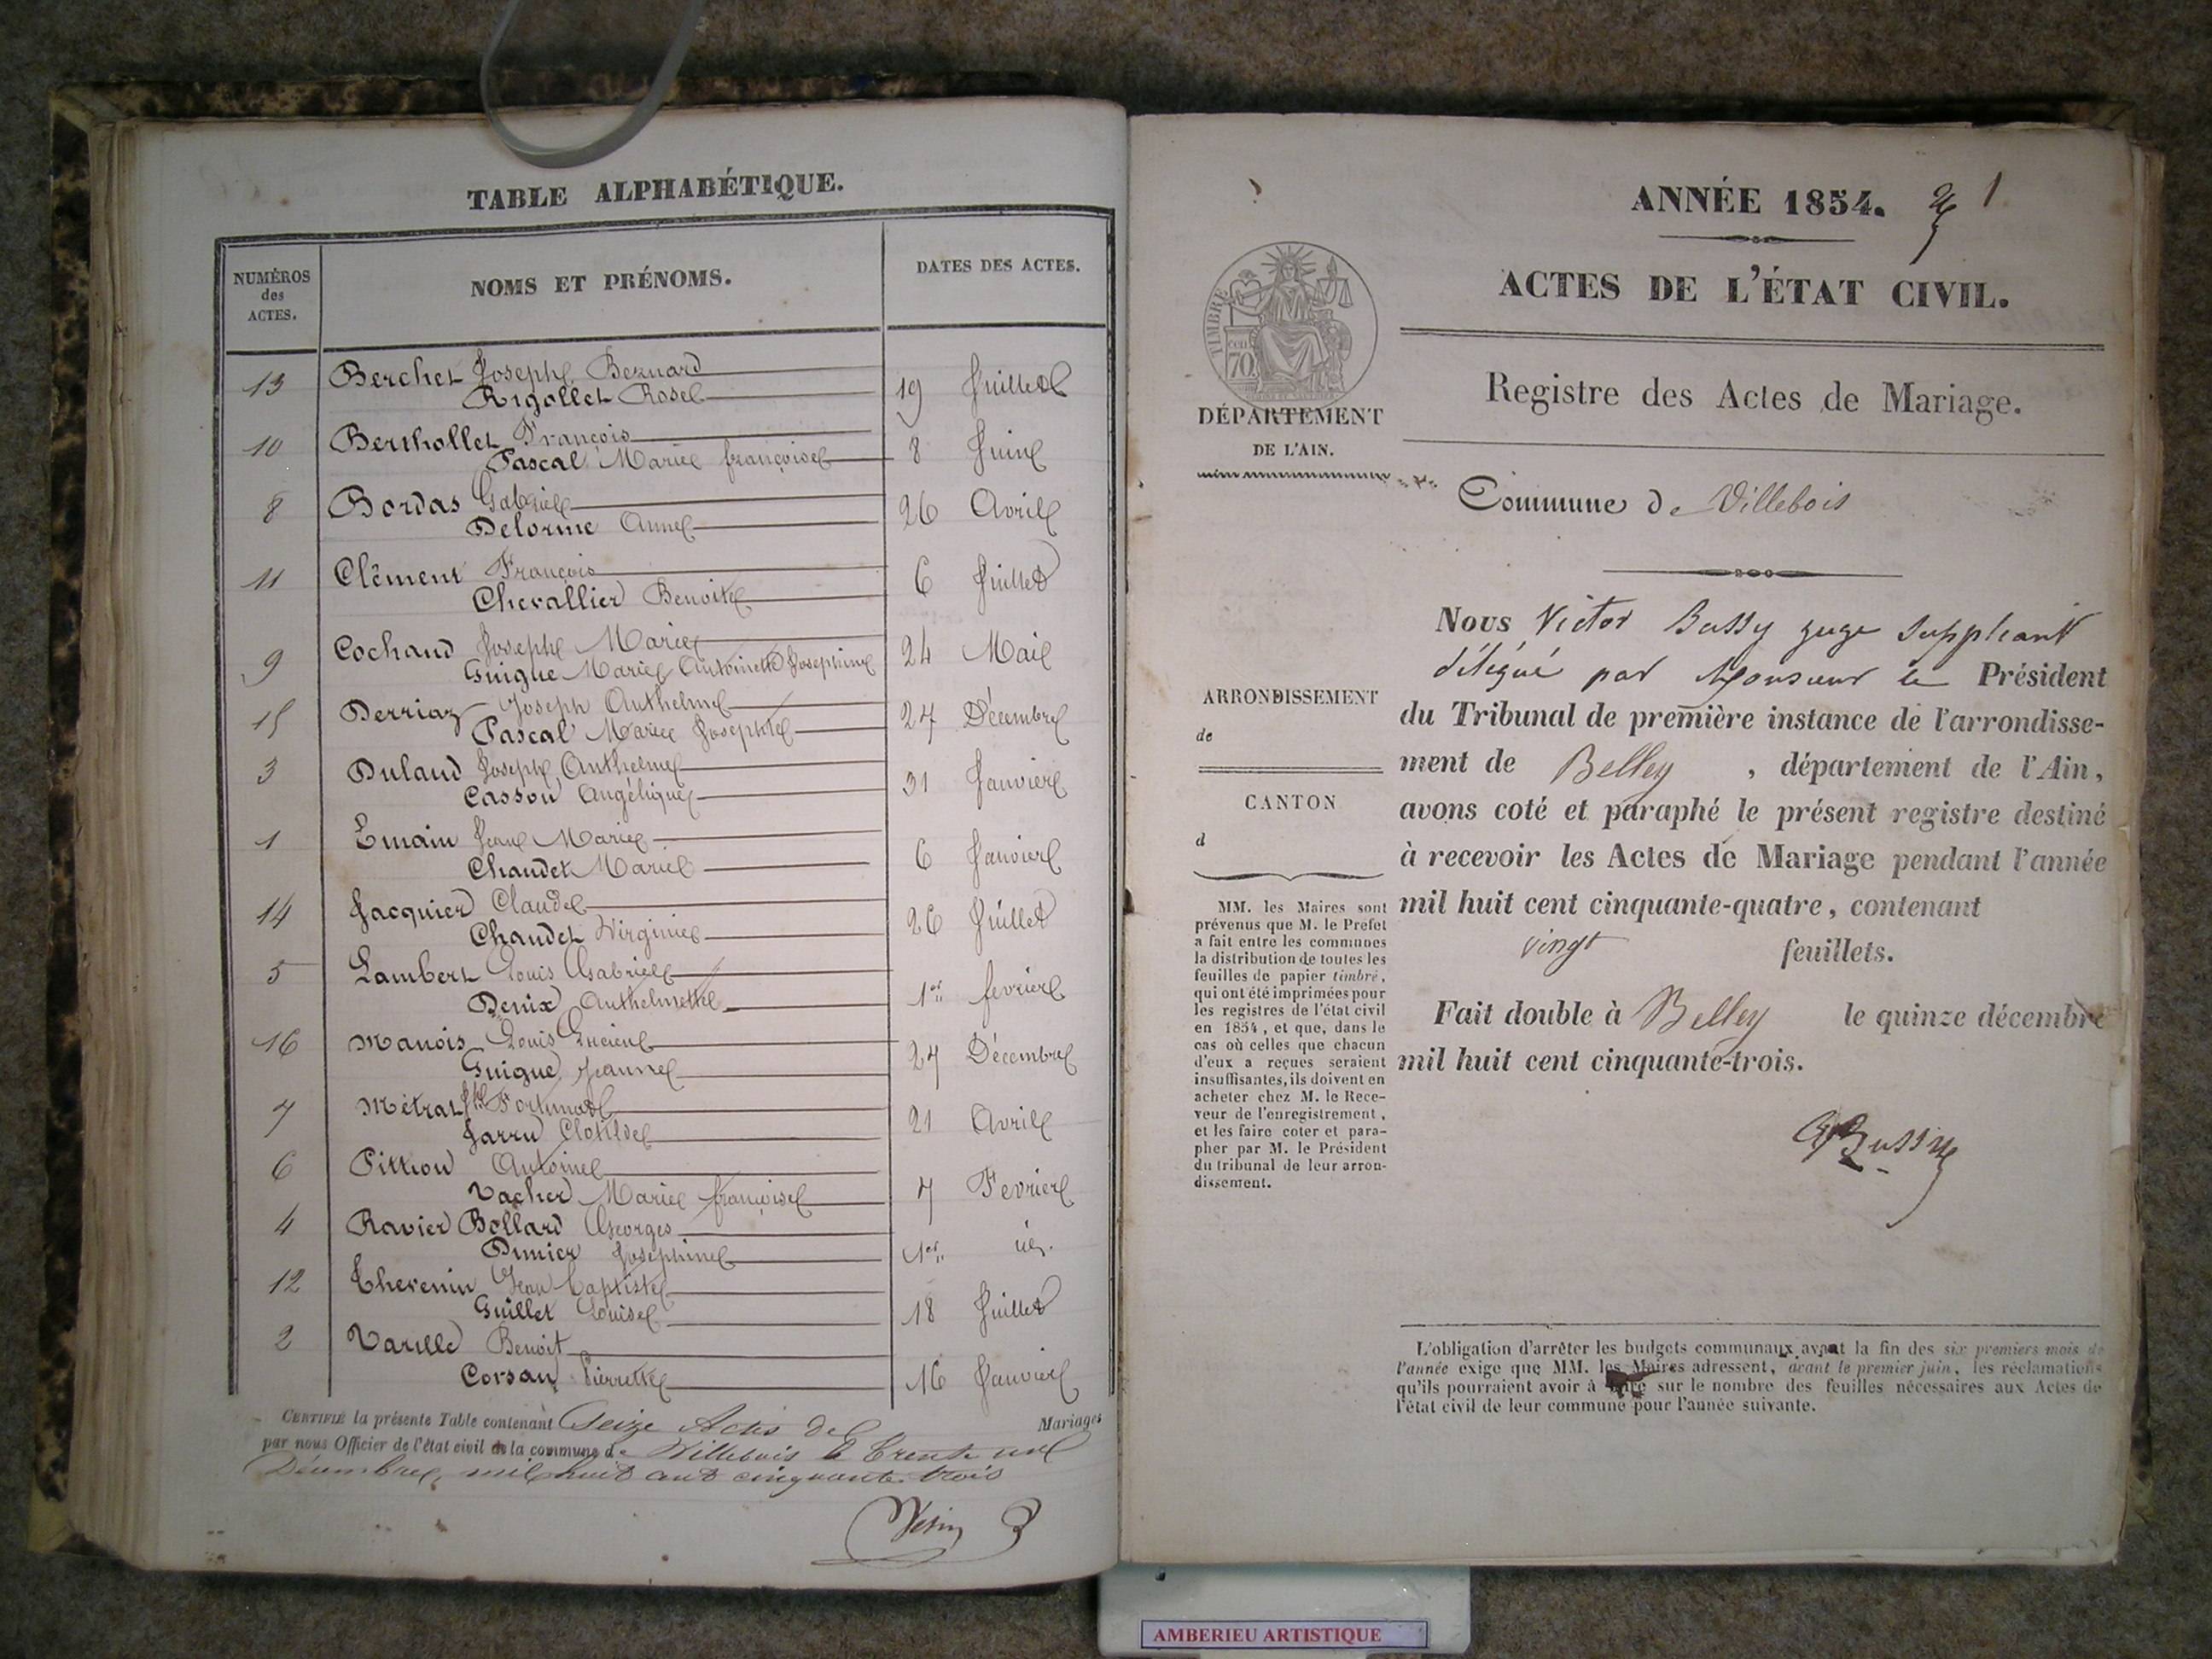 TABLE ALPHABÉTIQUE.
NUMÉROS
des
ACTES.
NOMS ET PRÉNOMS.
DATES DES ACTES.
13 Berchet Joseph Bernard
Rigollet Rose 19 Juillet
10 Berthollet François
Pascal Marie françoise 8 Juin
8 Bordas Gabriel
Delorme Anne 26 Avril
11 Clément François
Chevallier Benoite 6 Juillet
9 Cochand Joseph Marie
Guigue Marie Antoinette Josephine 24 Mai
15 Derriaz Joseph Anthelme
Pascal Marie Josephte 27 Décembre
3 Dulaud Joseph Anthelme
Casson Angélique 31 Janvier
1 Emain Jean Marie
Chaudet Marie 6 Janvier
14 Jacquier Claude
Chaudet Virginie 26 Juillet
5 Lambert Louis Gabriel
Denix Anthelmette 1er fevrier
16 Manois Louis Lucien
Guigue Jeanne 27 Décembre
7 Métral Fortunat
Jarru Clotilde 21 Avril
6 Pittion Antoine
Vacher Marie françoise 7 Fevrier
4 Ravier Bollard Georges
Dunier Josephine 1er
12 Thevenin Jean baptiste
Guillet Louise 18 Juillet
2 Varille Benoit
Corsan Pierrette 16 Janvier
CERTIFIÉ la présente Table contenant Seize Actes de Mariages
par nous Officier de l'état civil de la commune de Villebois le trente un
Décembre, mil huit cent cinquante trois
ANNÉE 1854. 1
ACTES DE L'ÉTAT CIVIL.
TIMBRE
70
Registre des Actes de Mariage.
DÉPARTEMENT
DE L'AIN.
Commune de Villebois
Nous Victor Bussy juge suppleant
délégué par Monsieur le Président
du Tribunal de première instance de l'arrondisse-
ment de Belley , département de l'Ain,
avons coté et paraphé le présent registre destiné
à recevoir les Actes de Mariage pendant l'année
mil huit cent cinquante-quatre, contenant
vingt feuillets.
Fait double à Belley le quinze décembre
mil huit cent cinquante-trois.
Bussy
ARRONDISSEMENT
de
CANTON
d
MM. les Maires sont
prévenus que M. le Préfet
a fait entre les communes
la distribution de toutes les
feuilles de papier timbré,
qui ont été imprimées pour
les registres de l'état civil
en 1854, et que, dans le
cas où celles que chacun
d'eux a reçues seraient
insuffisantes, ils doivent en
acheter chez M. le Rece-
veur de l'enregistrement,
et les faire coter et para-
pher par M. le Président
du tribunal de leur arron-
dissement.
L'obligation d'arrêter les budgets communaux avant la fin des six premiers mois de
l'année exige que MM. les Maires adressent, avant le premier juin, les réclamations
qu'ils pourraient avoir à faire sur le nombre des feuilles nécessaires aux Actes de
l'état civil de leur commune pour l'année suivante.
AMBERIEU ARTISTIQUE